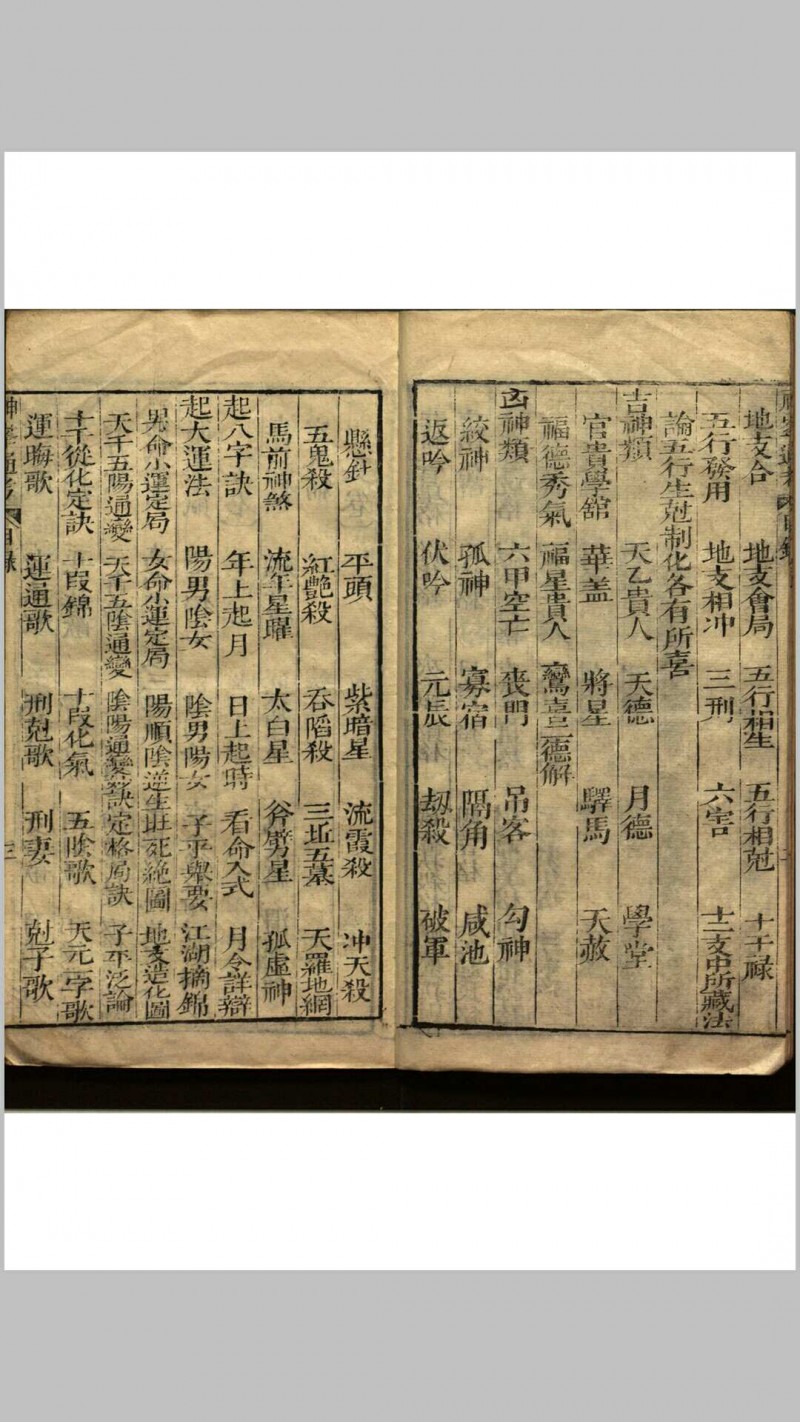 地支合 地支會局 五行相生 五行相尅 十干禄
五行發用 地支相冲 三刑 六害 十二支中所藏法
論五行生尅制化各有所喜
吉神類 天乙貴人 天德 月德 學堂
官貴學舘 華盖 將星 驛馬 天赦
福德秀氣 福星貴人 鸞喜二德解
凶神類 六甲空亡 喪門 吊客 勾神
絞神 孤神 寡宿 隔角 咸池
返吟 伏吟 元辰 刼殺 破軍
懸針 平頭 紫暗星 流霞殺 冲天殺
五鬼殺 紅艶殺 吞陷殺 三坵五墓 天羅地網
馬前神煞 流年星曜 太白星 斧劈星 孤虛神
起八字訣 年上起月 日上起時 看命入式 月令詳辯
起大運法 陽男陰女 陰男陽女 子平舉要 江湖摘錦
男命小運定局 女命小運定局 陽順陰逆生旺死絶圖 地支造化圖
天千五陽通變 天千五陰通變 陰陽通變訣 定格局訣 子平泛論
十干從化定訣 十叚錦 十叚化氣 五陰歌 天元一字歌
運晦歌 運通歌 刑尅歌 刑妻 尅子歌
目録